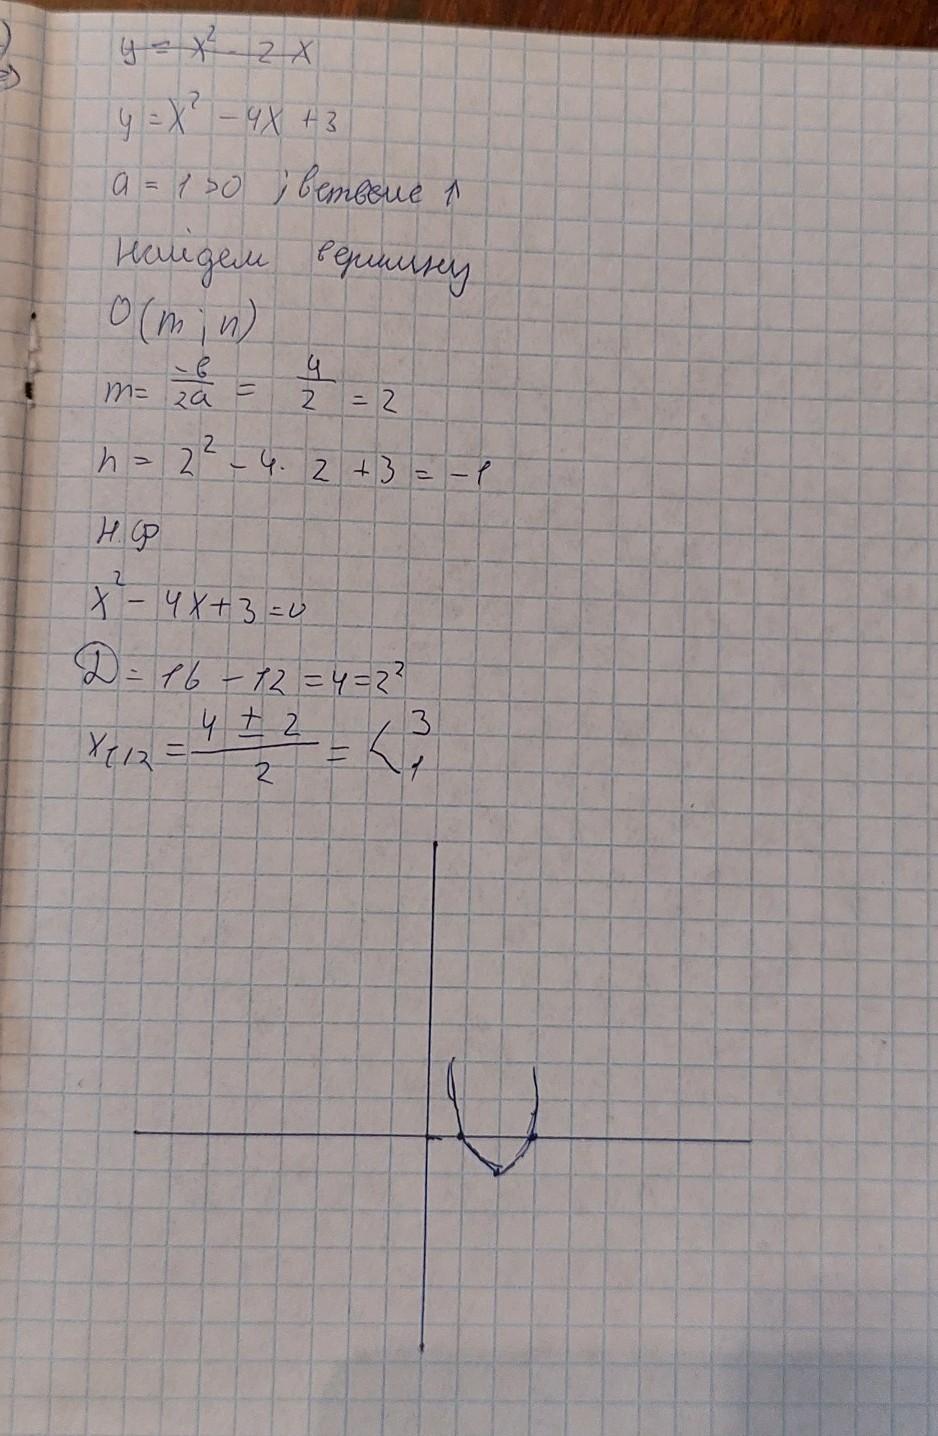 y = x² - 2x
y = x² - 4x + 3
a = 1 > 0 ; 1
Найдем вершину
O(m ; n)
m = -b/2a = 4/2 = 2
n = 2² - 4 · 2 + 3 = -1
Н.Ф
x² - 4x + 3 = 0
D = 16 - 12 = 4 = 2²
x₁,₂ = (4 ± 2)/2 = < 3 1